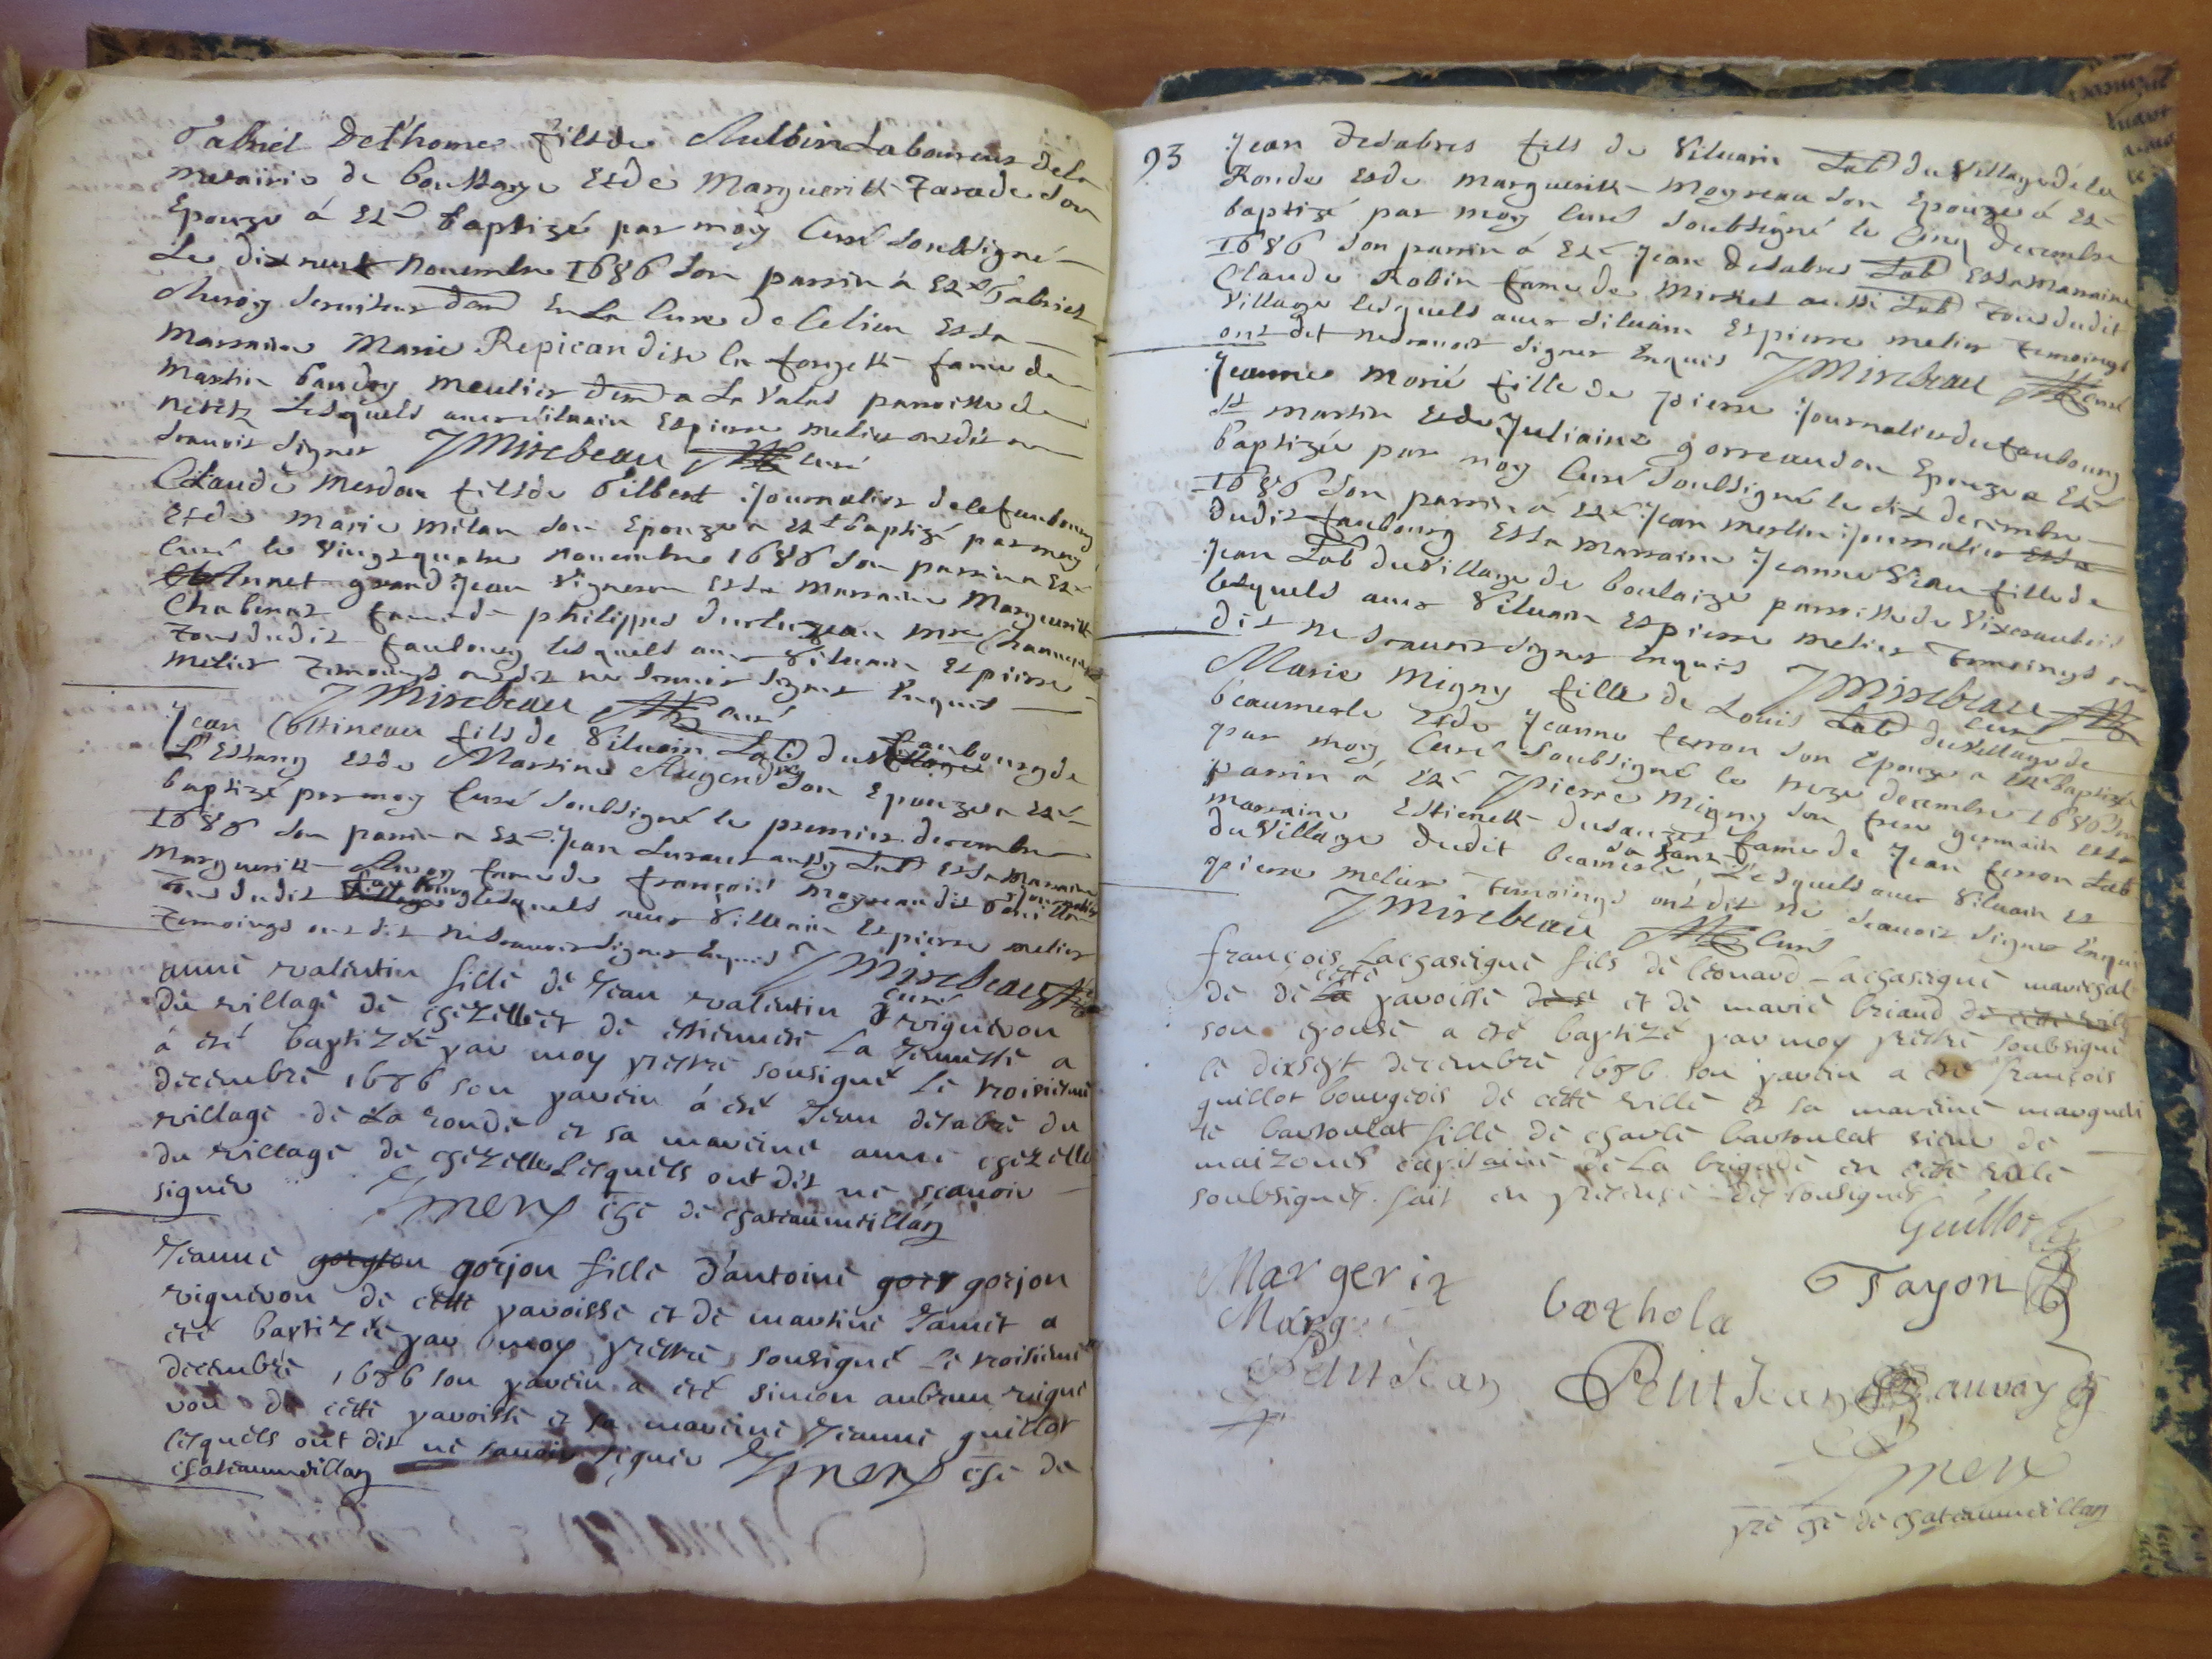 Gabriel Delhome fils de Aulbin Laboureur dela
metairie de boussarge Et de Margueritte Jarade son
Epouze á Esté baptizé par moy Curé soubsigné
Le dixneuf novembre 1686 son parrin á Esté Gabriel
serviteur dem En La Cure de Celieu Et sa
Marraine Marie Repican dite la forgett fame de
Martin baudry meulier dem a La Valas parroisse de
neretz Lesquels avec Silvain Et pierre melier ont dit ne
scavoir signer JMirebeau Curé
Claude merdon fils de Gilbert Journalier de le faubourg
Et de Marie milan son Epouze a Esté baptizé par moy
Curé le vingt quatre novembre 1686 son parrin a Esté
Annet grand Jean Vigneron Et sa Marraine Margueritte
Chabenat fame de philippes
Tous dudit faubourg lesquels avec Silvain Et pierre
melier Temoings ont dit ne scavoir signer Enquis
JMirebeau Curé
Jean Cottineau fils de Silvain Lab du village faubourg de
L'Estang Et de Martine Augendre son Epouze a Esté
baptizé par moy Curé soubsigné le premier decembre
1686 son parrin a Esté Jean aussy Lab Et sa Marraine
Margueritte fame de françois moyreau dit Journalier
Tous dudit village faubourg lesquels avec Silvain Et pierre melier
Temoings ont dit ne scavoir signer Enquis JMirebeau
curé
anne valentin fille de Jean valentin vigneron
du village de chezelle et de estiennete La Jeunesse a
á eté baptizée par moy prettre sousigné le troisieme
decembre 1686 son parein á eté Jean desabre du
village de La ronde et sa mareine anne chezelle
du village de chezelle Lesquels ont dit ne scavoir
signer Emery che de chateaumeillan
Jeanne gorgion gorjon fille d'antoine gorj gorjon
vigneron de cette paroisse et de martine Jamet a
eté baptizée par moy prettre sousigné le troisieme
decembre 1686 son parein a eté simon aubrun vigne
ron de cette paroisse et sa mareine Jeanne guillot
lesquels ont dit ne scavoir signer Emery che de
chateaumeillan
93
Jean desabres fils de Silvain Lab du Village de la
Ronde Et de Margueritte Moyreau son Epouze á Esté
baptizé par moy Curé soubsigné le Cinq decembre
1686 son parrin á Esté Jean desabres Lab Et sa Marraine
Claude Robin fame de Michel aussi Lab Tous dudit
Village lesquels avec Silvain Et pierre melier Temoings
ont dit ne scavoir signer Enquis JMirebeau Curé
Jeanne Morié fille de pierre Journalier du faubourg
St martin Et de Juliaine gorreau son Epouze a Esté
baptizée par moy Curé soubsigné le dix decembre
1686 son parrin á Esté Jean merlin Journalier Et sa
dudit faubourg Et sa Marraine Jeanne Viau fille de
Jean Lab du Village de boulaize parroisse de
lesquels avec Silvain Et pierre melier Temoings ont
dit ne scavoir signer Enquis JMirebeau
Curé
Marie Migny fille de Louis Lab du Village de
beaumerle Et de Jeanne ferron son Epouze a Esté baptizée
par moy Curé soubsigné le treze decembre 1686 son
parrin á Esté Pierre Migny son frere germain Et sa
marraine Estienette dusauzet fame de Jean ferron Lab
du Village dudit beamerle Lesquels avec Silvain Et
pierre melier Temoings ont dit ne scavoir signer Enquis
JMirebeau Curé
françois Lachasseigne fils de leonard lachaseigne marechal
de de la cette paroisse et de marie briaud de cette ville
son epouse a eté baptizé par moy prettre soubsigné
le dixsept decembre 1686 son parein a eté françois
guillot bourgeois de cette ville et sa mareine margueri
te bartoulat fille de charle bartoulat sieur de
maizones capitaine de La brigade en cette ville
soubsignes. fait en presence des sousignes
Guillot
Margerit
Marg
barthola
Tayon
Petit Jean
Petit Jean
auvay
Emery
pre che de chateaumeillan